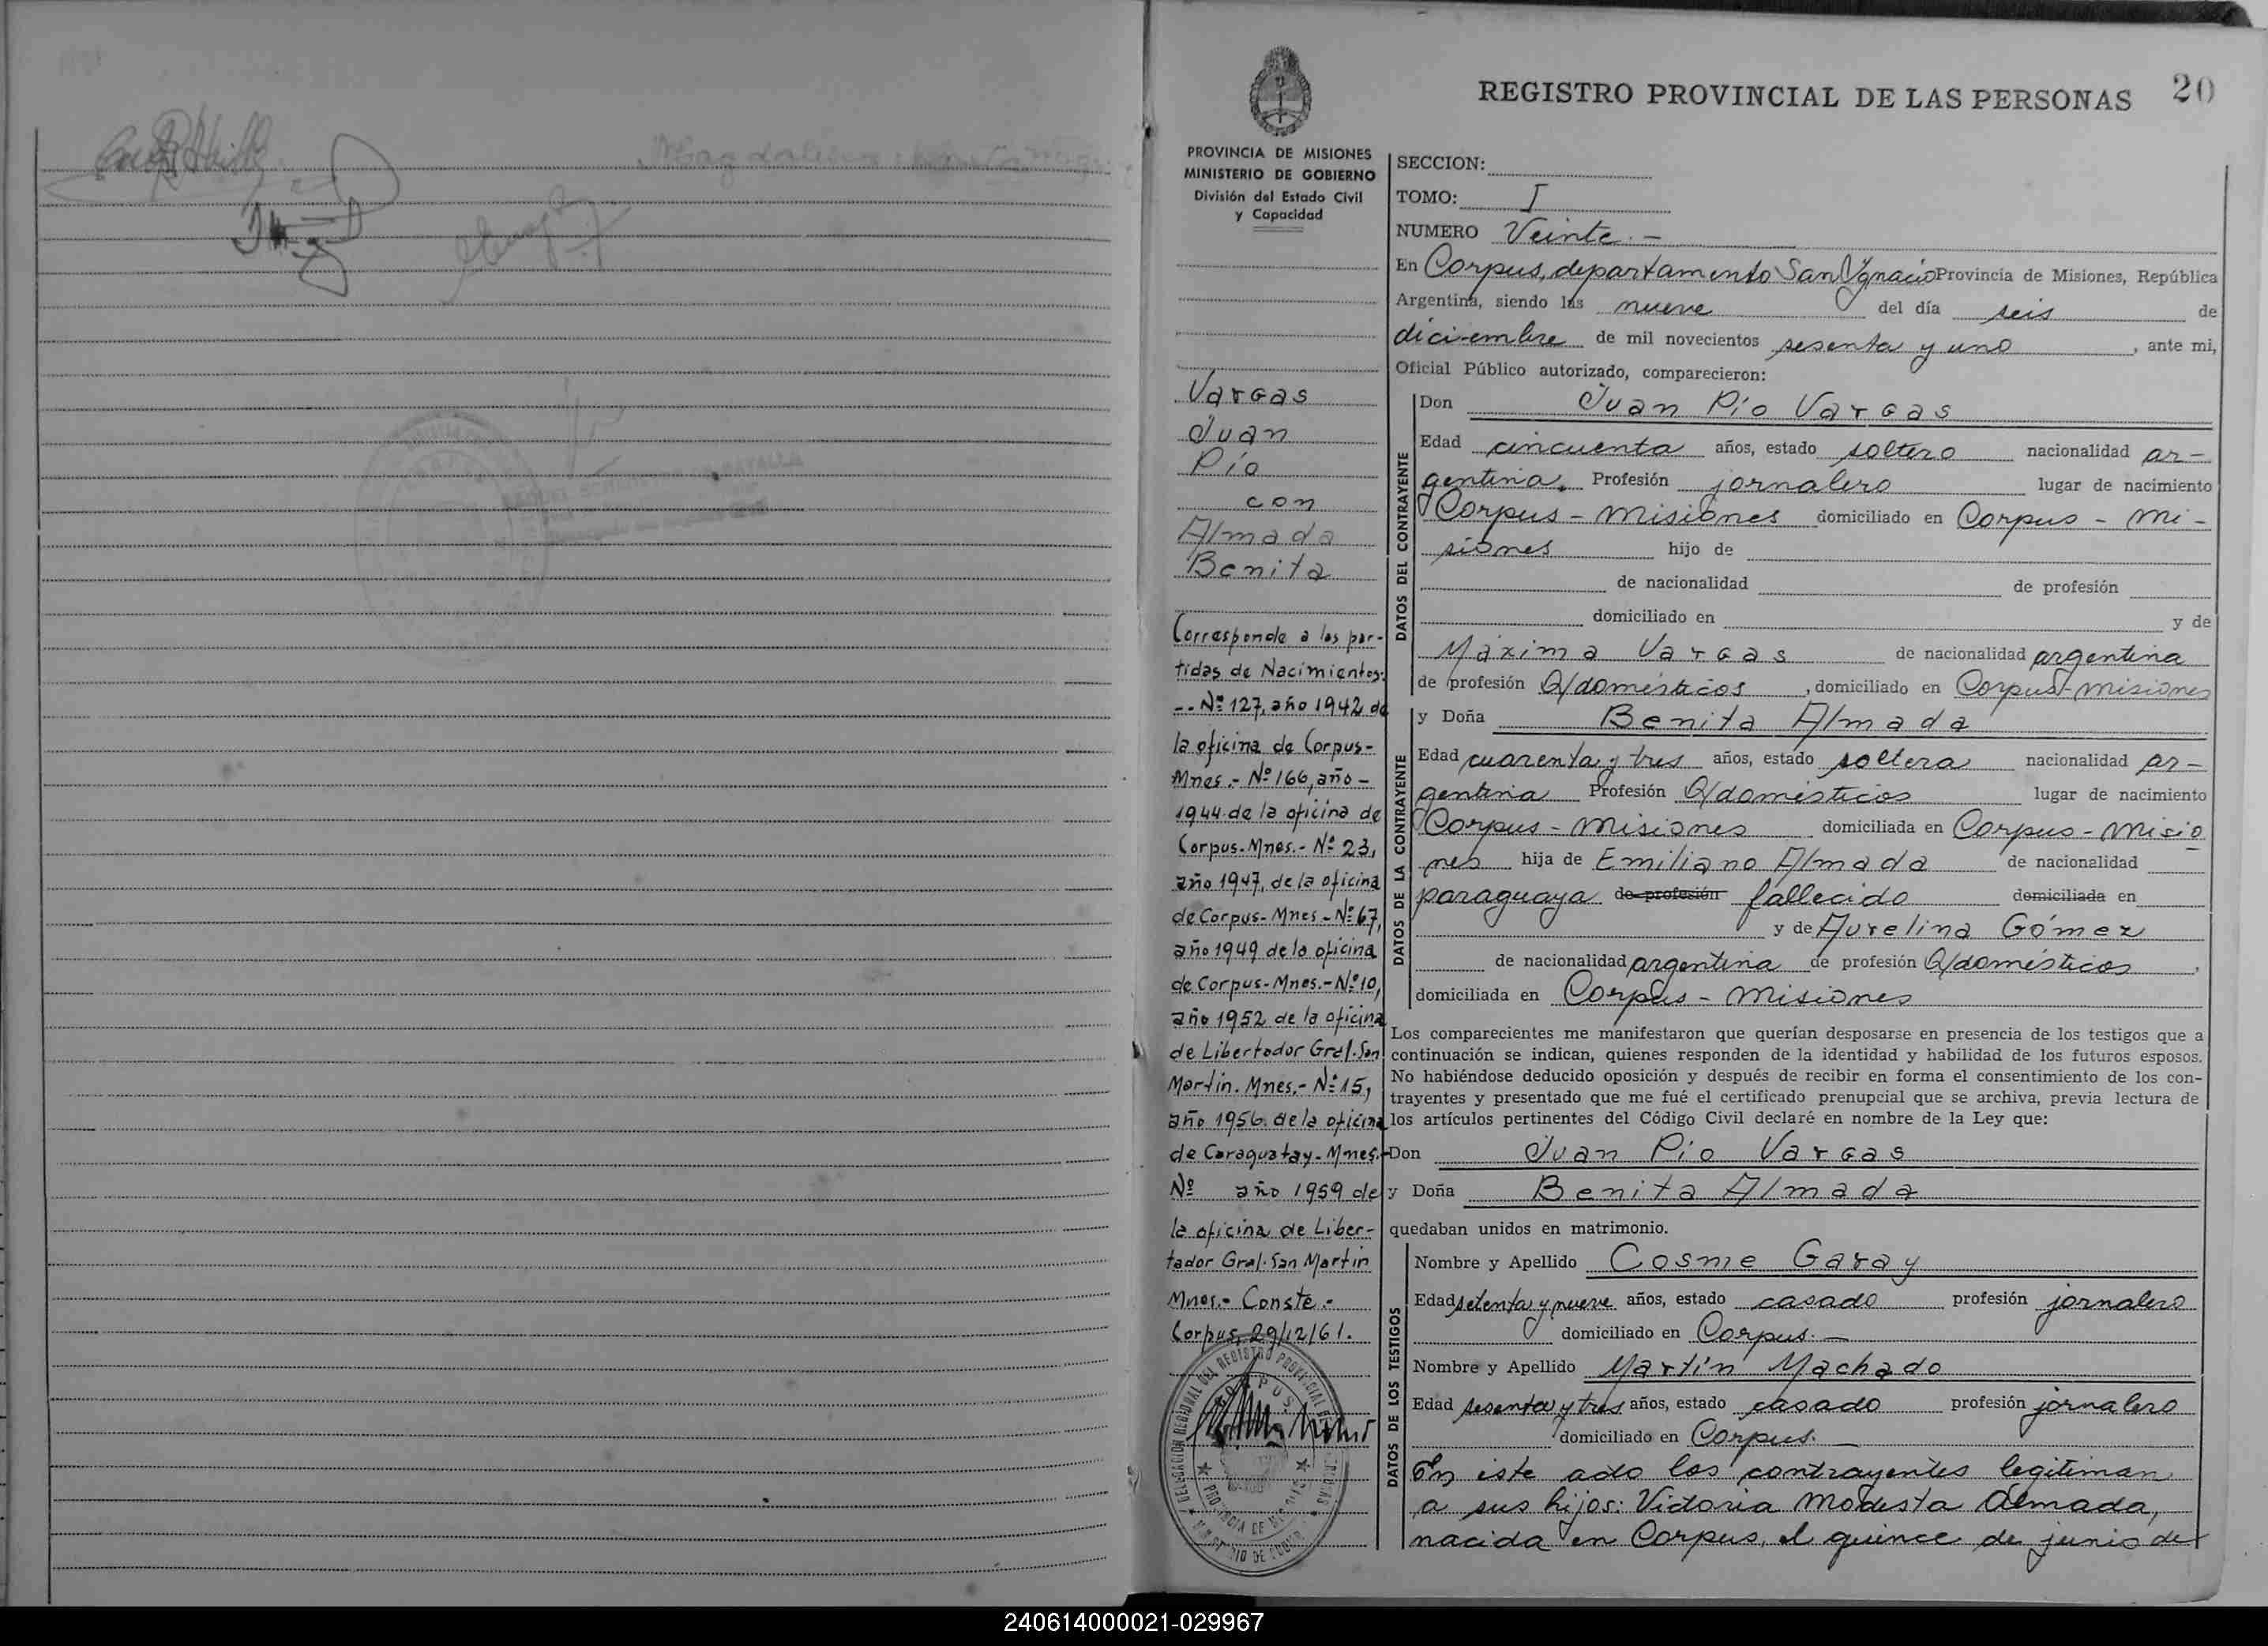 REGISTRO PROVINCIAL DE LAS PERSONAS 20
PROVINCIA DE MISIONES
MINISTERIO DE GOBIERNO
División del Estado Civil
y Capacidad
Vargas
Juan
Pío
con
Almada
Benita
Corresponde a las par-
tidas de Nacimientos:
-- Nº 127, año 1942 de
la oficina de Corpus-
Mnes.- Nº 166, año -
1944 de la oficina de
Corpus-Mnes.- Nº 23,
año 1947, de la oficina
de Corpus-Mnes.- Nº 67,
año 1949 de la oficina
de Corpus-Mnes.- Nº 10,
año 1952 de la oficina
de Libertador Gral. San
Martín. Mnes.- Nº 15,
año 1956 de la oficina
de Caraguatay-Mnes.-
Nº año 1959 de
la oficina de Liber-
tador Gral. San Martín
Mnes.- Conste.-
Corpus, 29/12/61.
SECCION:
TOMO: I
NUMERO Veinte.-
En Corpus, departamento San Ygnacio Provincia de Misiones, República
Argentina, siendo las nueve del día seis de
diciembre de mil novecientos sesenta y uno, ante mi,
Oficial Público autorizado, comparecieron:
DATOS DEL CONTRAYENTE
Don Juan Pío Vargas
Edad cincuenta años, estado soltero nacionalidad ar-
gentina. Profesión jornalero lugar de nacimiento
Corpus - Misiones domiciliado en Corpus - Mi-
siones hijo de
de nacionalidad de profesión
domiciliado en y de
Máxima Vargas de nacionalidad argentina
de profesión Q/domésticos, domiciliado en Corpus-Misiones
DATOS DE LA CONTRAYENTE
y Doña Benita Almada
Edad cuarenta y tres años, estado soltera nacionalidad ar-
gentina Profesión Q/domésticos lugar de nacimiento
Corpus - Misiones domiciliada en Corpus - Misio
nes hija de Emiliano Almada de nacionalidad
paraguaya de profesión fallecido domiciliada en
y de Aurelina Gómez
de nacionalidad argentina de profesión Q/domésticos,
domiciliada en Corpus - Misiones
Los comparecientes me manifestaron que querían desposarse en presencia de los testigos que a
continuación se indican, quienes responden de la identidad y habilidad de los futuros esposos.
No habiéndose deducido oposición y después de recibir en forma el consentimiento de los con-
trayentes y presentado que me fué el certificado prenupcial que se archiva, previa lectura de
los artículos pertinentes del Código Civil declaré en nombre de la Ley que:
Don Juan Pío Vargas
y Doña Benita Almada
quedaban unidos en matrimonio.
DATOS DE LOS TESTIGOS
Nombre y Apellido Cosme Garay
Edad setenta y nueve años, estado casado profesión jornalero
domiciliado en Corpus.-
Nombre y Apellido Martín Machado
Edad sesenta y tres años, estado casado profesión jornalero
domiciliado en Corpus.-
En este acto los contrayentes legitiman
a sus hijos: Victoria Modesta Almada,
nacida en Corpus, el quince de junio de
240614000021-029967